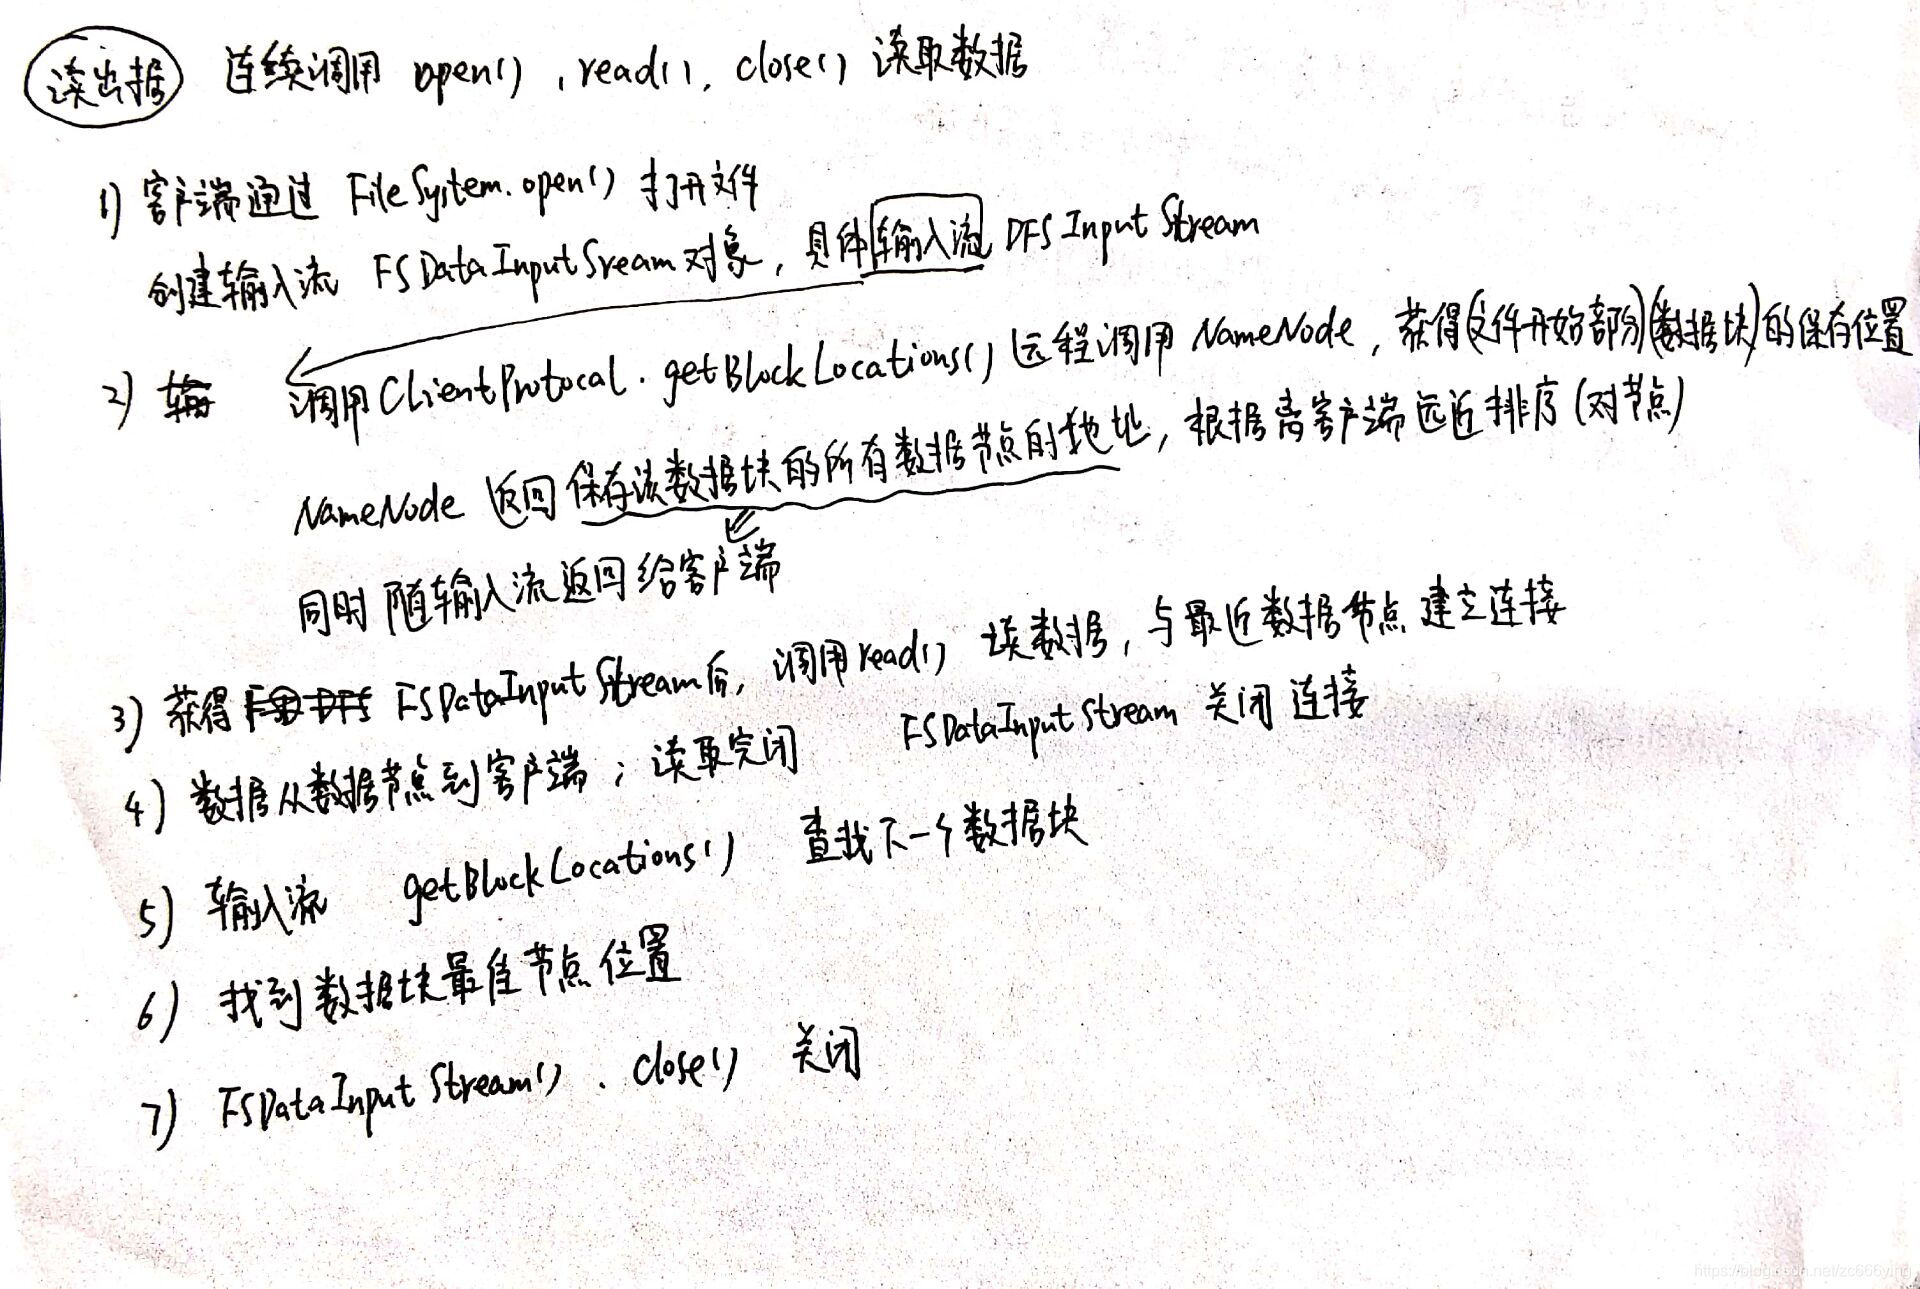 读出据 连续调用 open() , read(), close() 读取数据
1) 客户端通过 FileSystem.open() 打开文件
创建输入流 FSDataInputSream对象, 具体输入流 DFSInputStream
2) 调用ClientProtocal.getBlockLocations() 远程调用 NameNode, 获得(文件开始部分)(数据块)的保存位置
NameNode 返回保存该数据块的所有数据节点的地址, 根据离客户端远近排序(对节点)
同时随输入流返回给客户端
3) 获得 FSDataInputStream后, 调用read() 读数据, 与最近数据节点建立连接
4) 数据从数据节点到客户端; 读取完闭 FSDataInputStream 关闭连接
5) 输入流 getBlockLocations() 查找下一个数据块
6) 找到数据块最佳节点位置
7) FSDataInputStream().close() 关闭